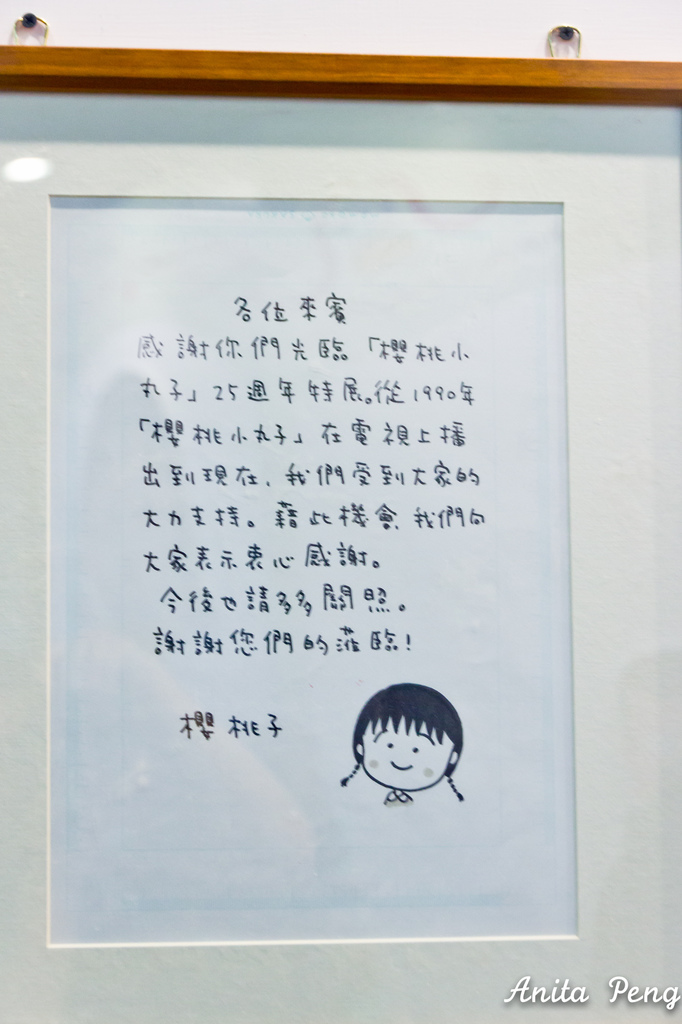 各位來賓
感謝你們光臨「櫻桃小
丸子」25週年特展。從1990年
「櫻桃小丸子」在電視上播
出到現在,我們受到大家的
大力支持。藉此機會,我們向
大家表示衷心感謝。
今後也請多多關照。
謝謝您們的蒞臨!
櫻桃子
Anita Peng